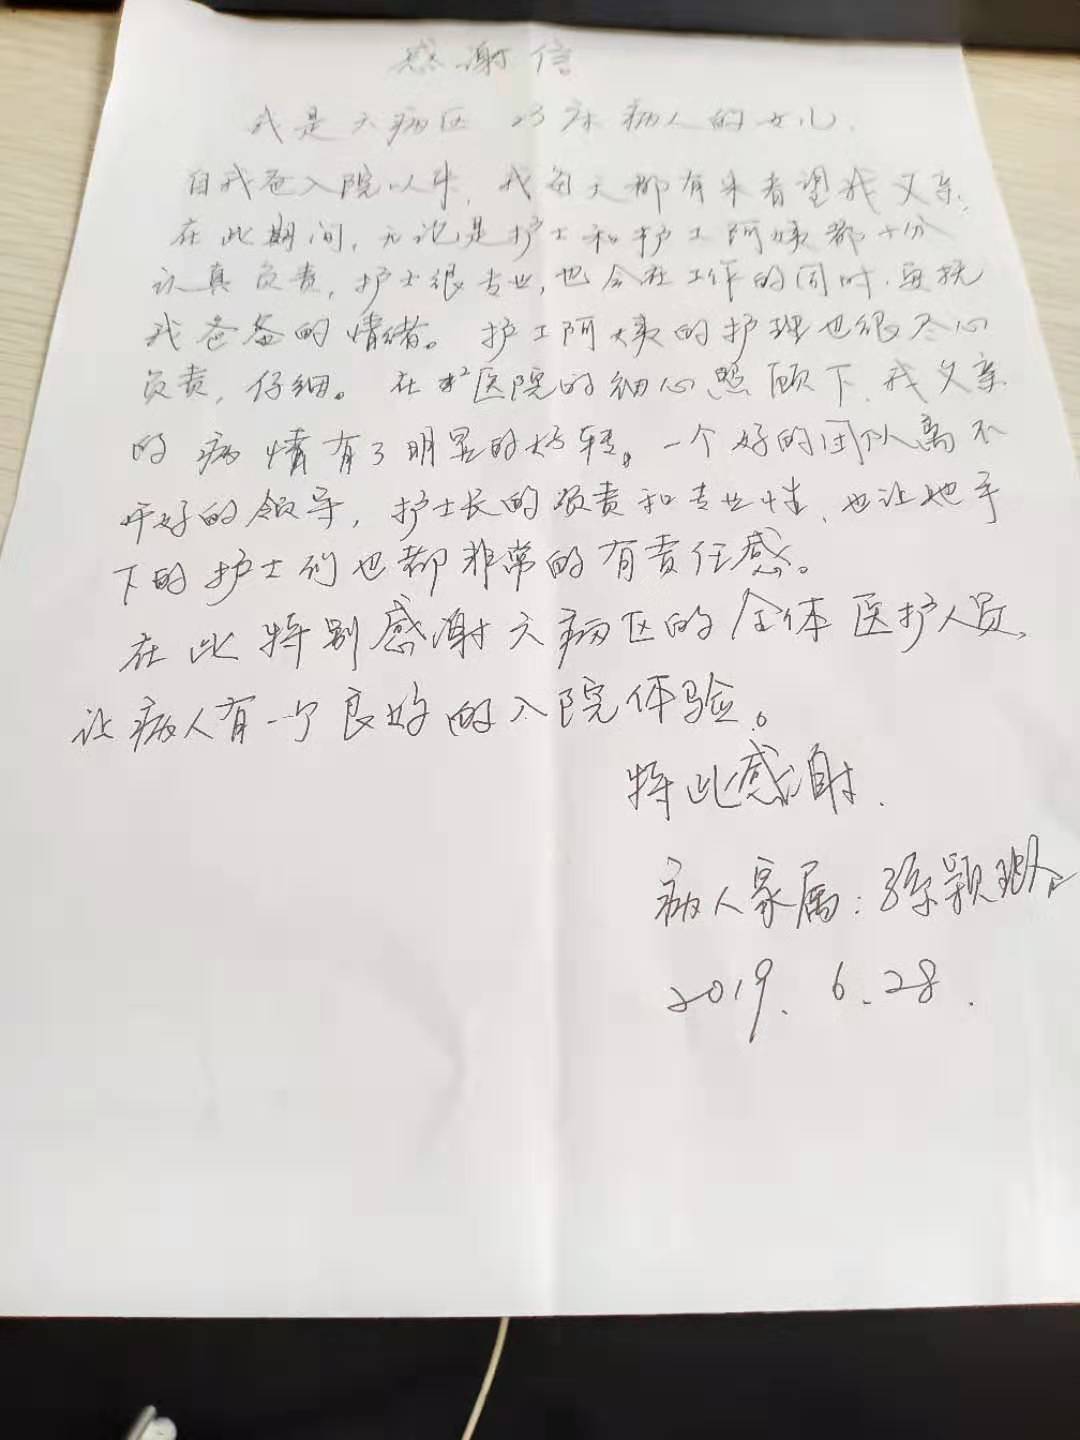 感谢信
我是六病区 23床病人的女儿.
自我爸入院以来,我每天都有来看望我父亲,
在此期间,无论是护士和护工阿姨都十分
认真负责,护士很专业,也会在工作的同时.安抚
我爸爸的情绪。护工阿姨的护理也很尽心
负责,仔细。在 医院的细心照顾下,我父亲
的病情有了明显的好转。一个好的团队离不
开好的领导,护士长的负责和专业性,也让她手
下的护士们也都非常的有责任感。
在此特别感谢六病区的全体医护人员,
让病人有一个良好的入院体验。
特此感谢.
病人家属:孙颖
2019.6.28.